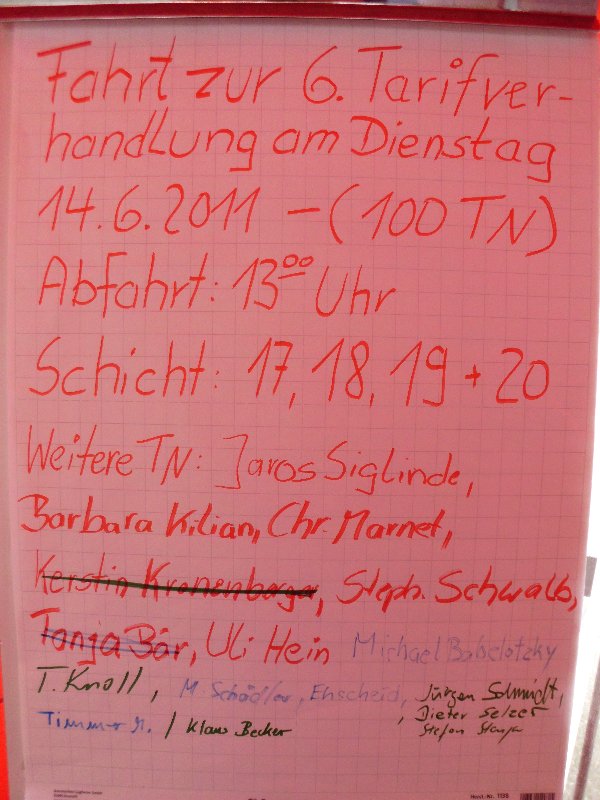 Fahrt zur 6. Tarifver-
handlung am Dienstag
14.6.2011 – (100 TN)
Abfahrt: 13⁰⁰ Uhr
Schicht: 17, 18, 19 + 20
Weitere TN: Jaros Siglinde,
Barbara Kilian, Chr. Marnet,
Kerstin Kronenberger, Steph. Schwalb,
Tanja Bär, Uli Hein Michael Babelotzky
T. Knoll, M. Schädler, Ehscheid, Jürgen Schmidt,
, Dieter Selzer
Timmo M. / Klaus Becker Stefan
Best.-Nr. 1138